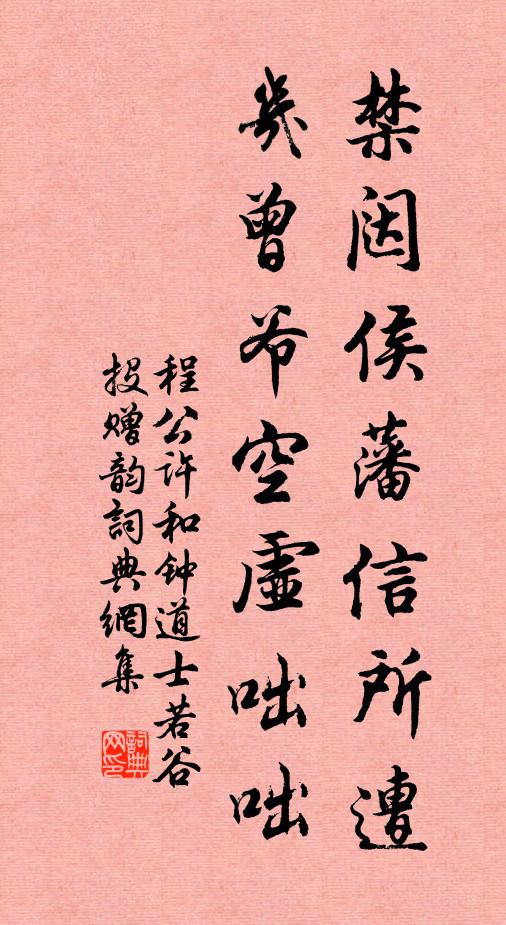 禁闼侯藩信所遭
幾曾爷空虛咄咄
程公许和钟道士若谷
投赠韵詞典網集
詞典
网印